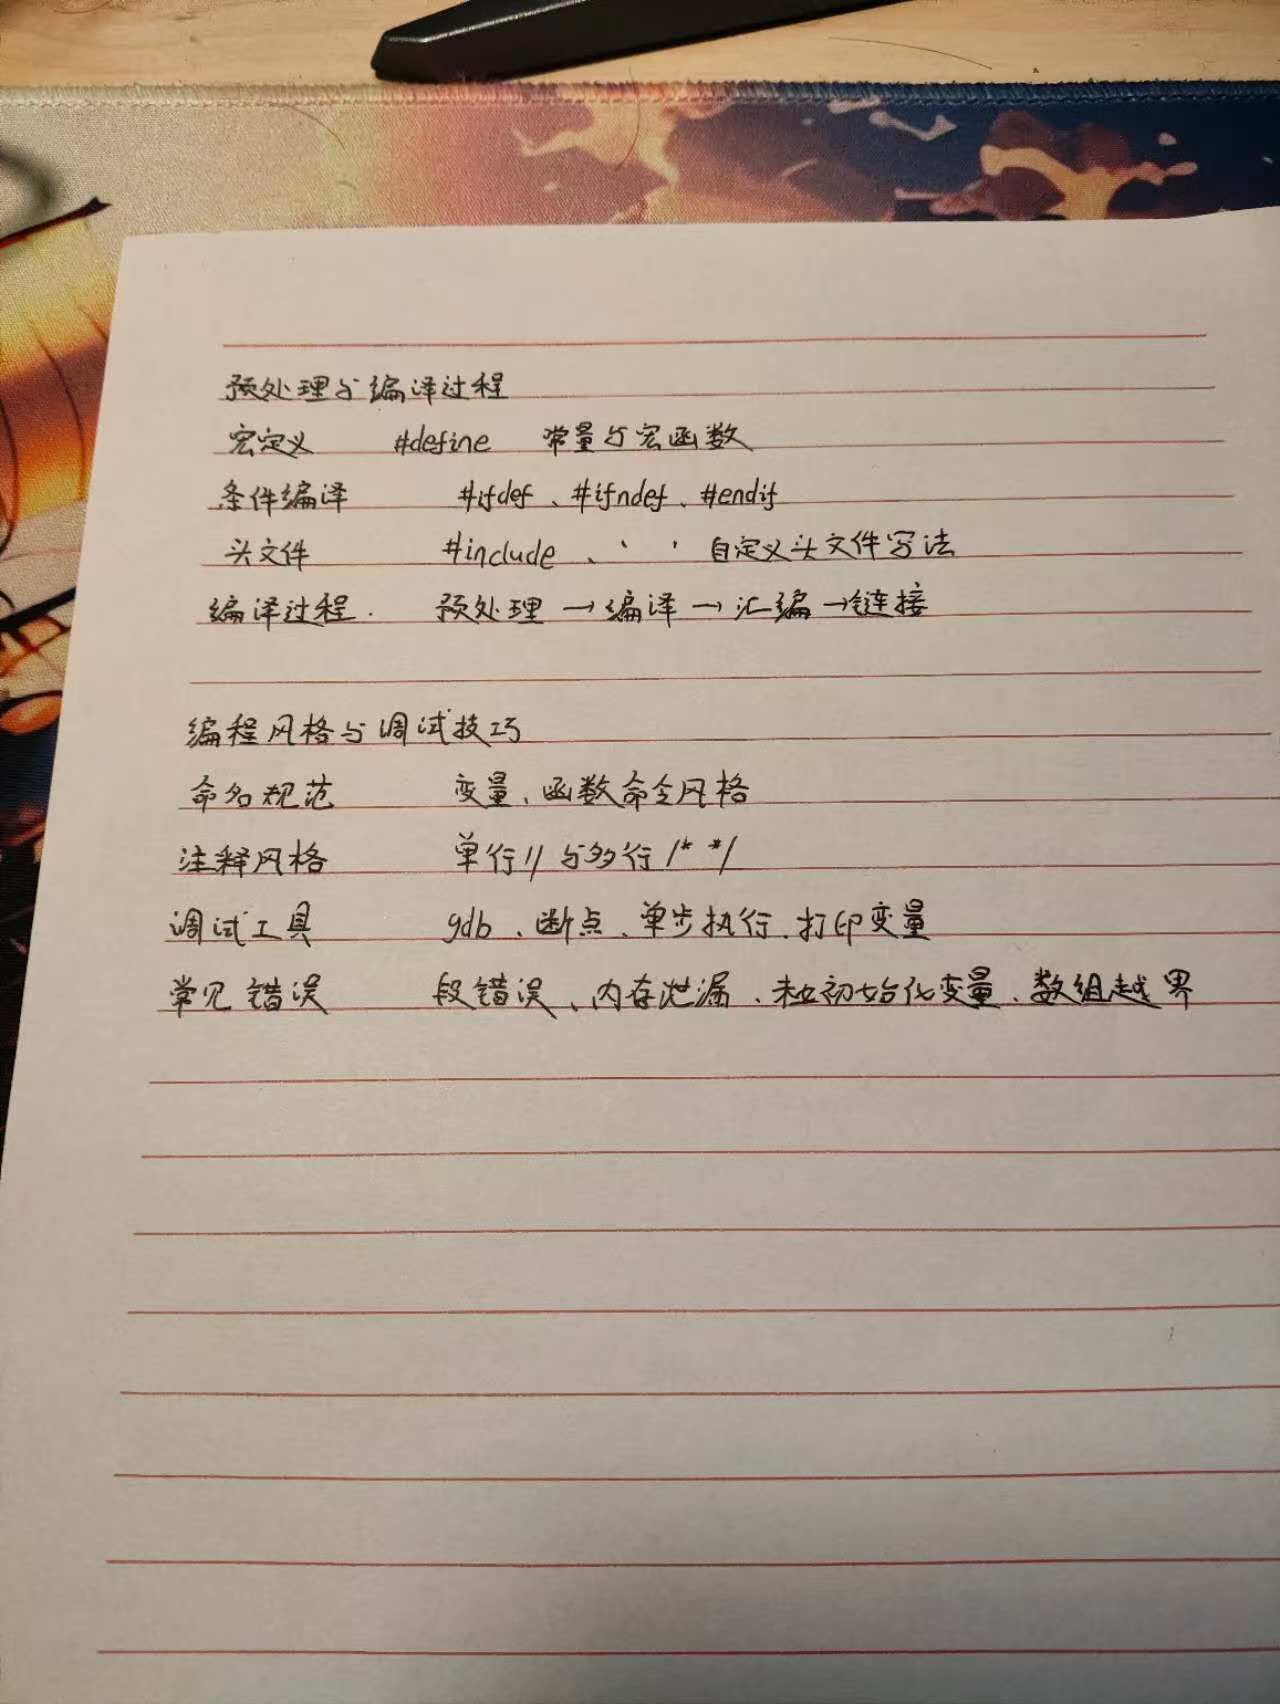 预处理与编译过程
宏定义 #define 常量与宏函数
条件编译 #ifdef、#ifndef、#endif
头文件 #include、' ' 自定义头文件写法
编译过程. 预处理→编译→汇编→链接
编程风格与调试技巧
命名规范 变量、函数命令风格
注释风格 单行// 与多行 /* */
调试工具 gdb、断点、单步执行、打印变量
常见错误 段错误、内存泄漏、初始化变量、数组越界